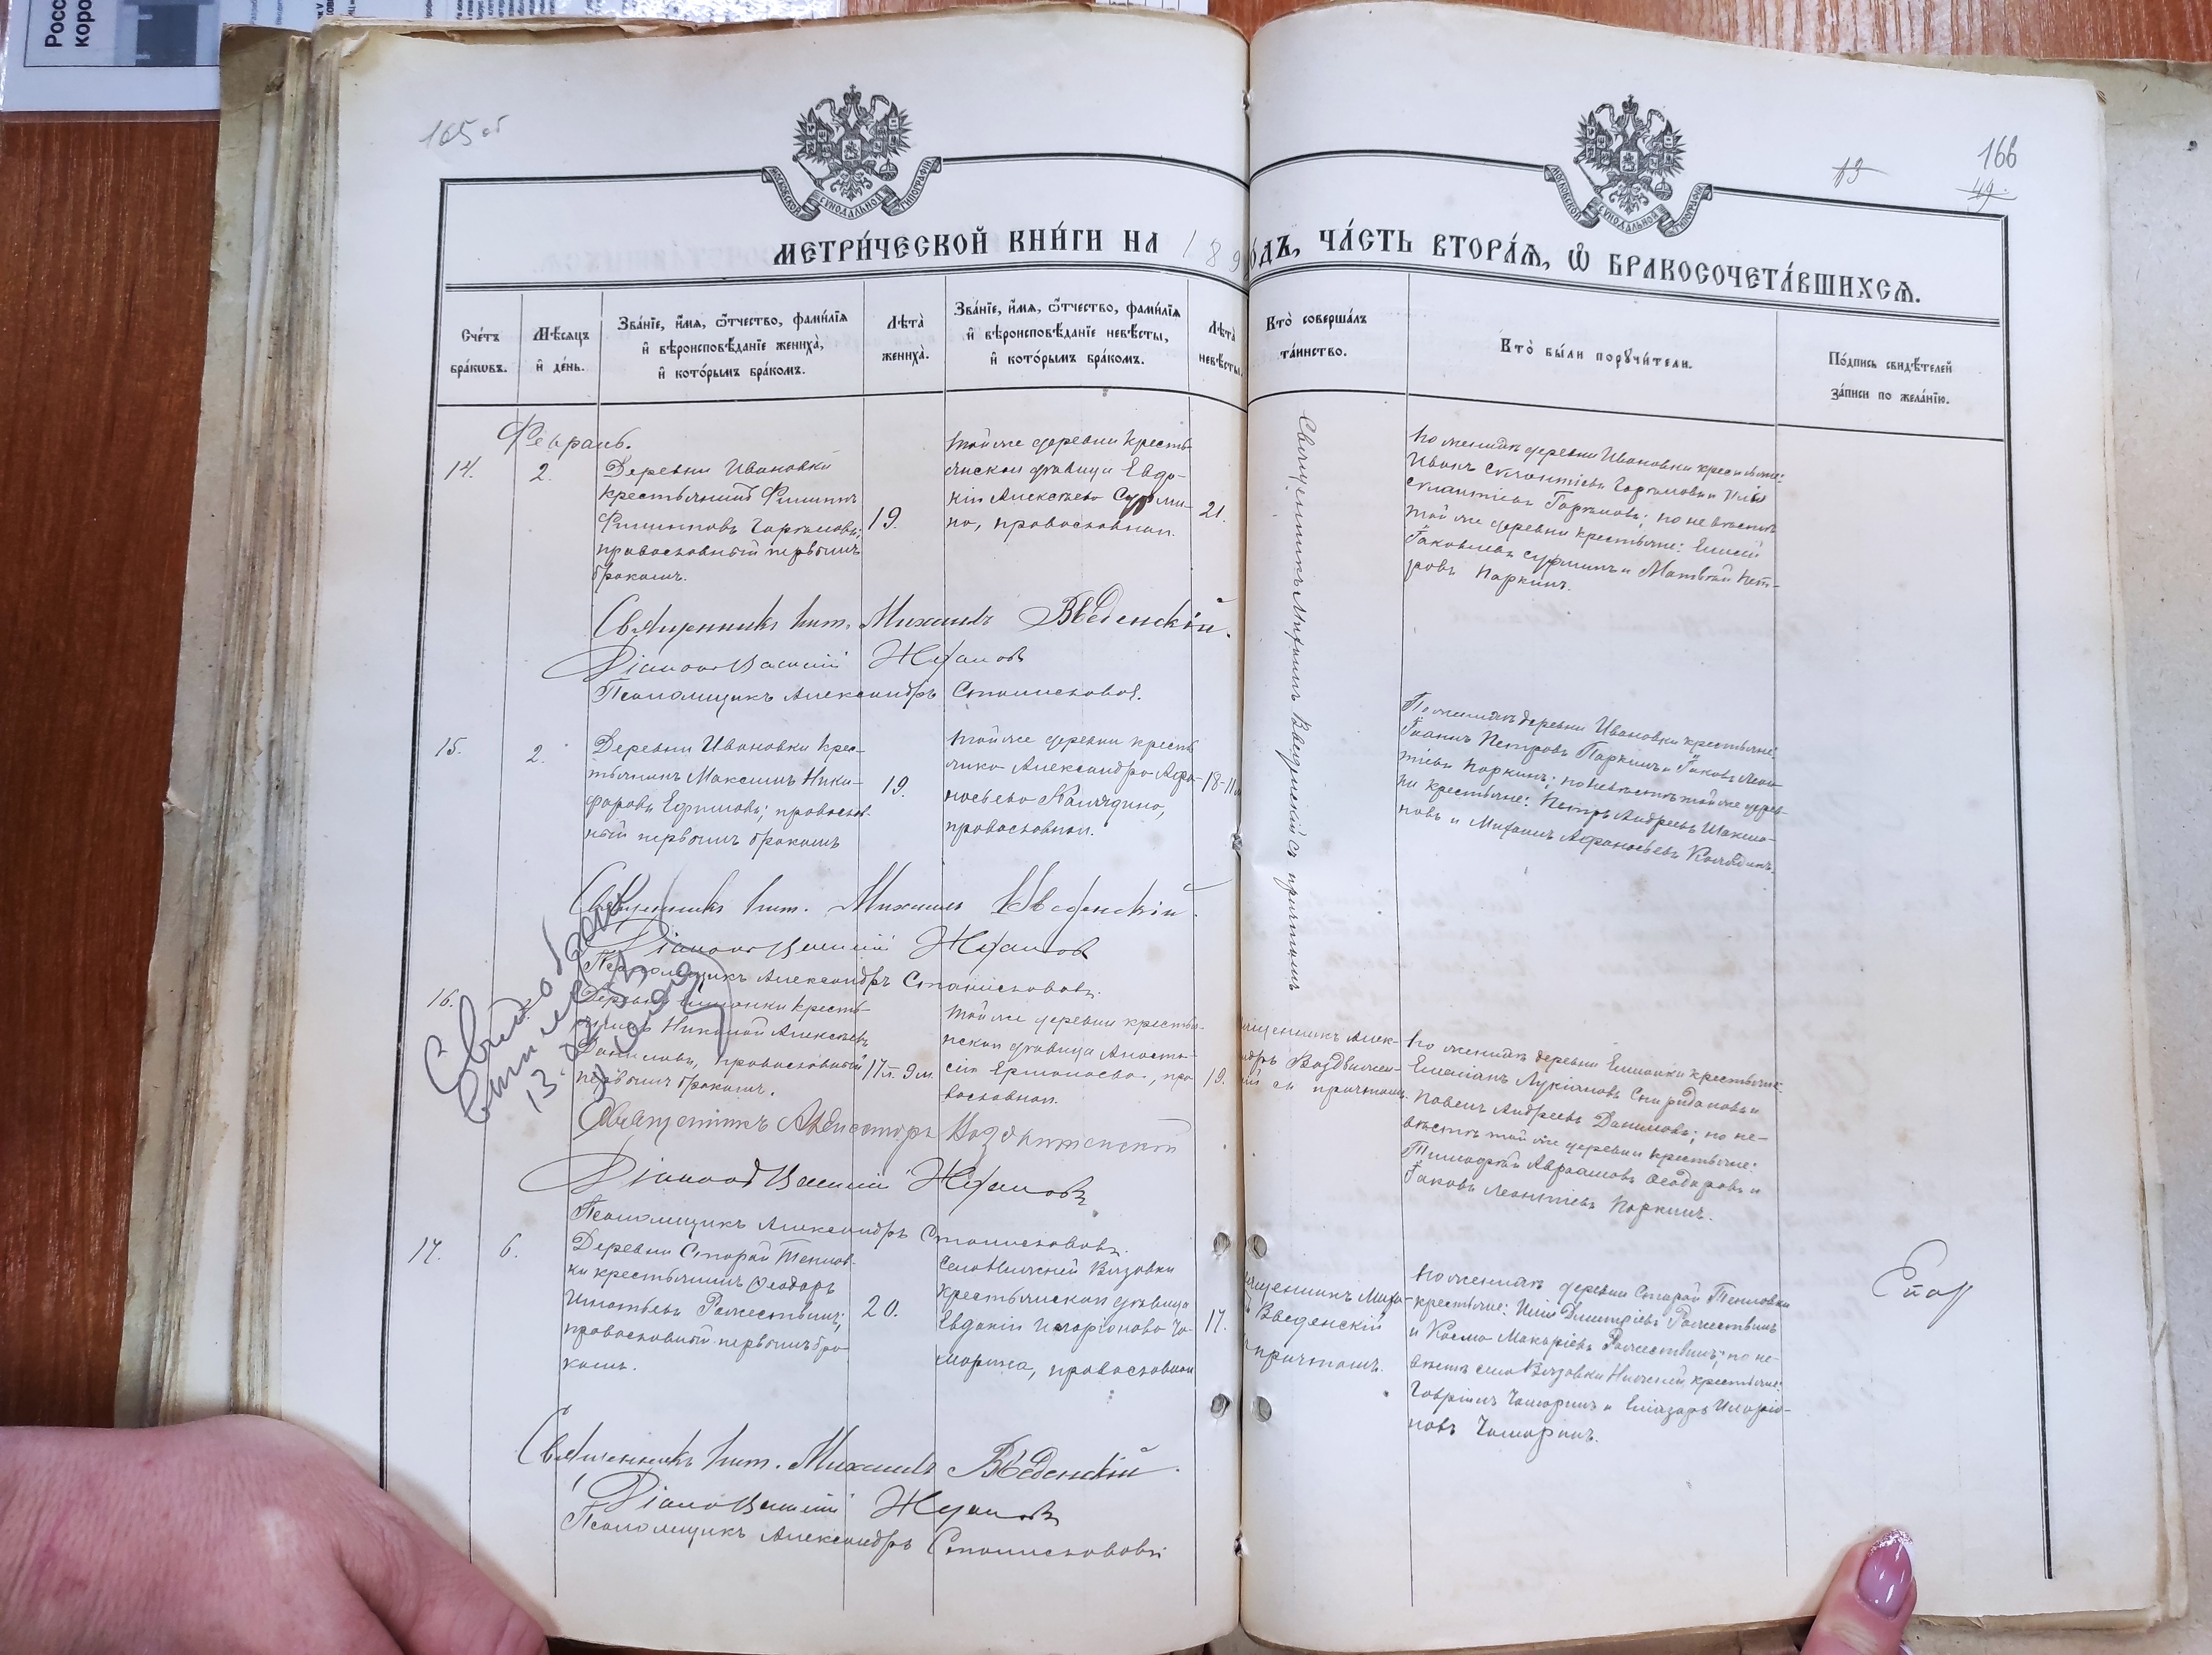 165 об
166
13
49
МОСКОВСКОЙ СУНОДАЛЬНОЙ ТИПОГРАФІИ
МОСКОВСКОЙ СУНОДАЛЬНОЙ ТИПОГРАФІИ
МЕТРИ́ЧЕСКОЙ КНИ́ГИ НА 189
ОДЪ, ЧА́СТЬ ВТОРА́Я, Ѿ БРАКОСОЧЕТА́ВШИХСЯ.
Сче́тъ
бра́кѡвъ.
Мѣ́сяцъ
и҆ де́нь.
Зва́нїе, и҆́мя, ѻ҆́тчество, фами́лїя
и҆ вѣроисповѣ́данїе жениха̀,
и҆ кото́рымъ бра́комъ.
Лѣ́та
жениха̀.
Зва́нїе, и҆́мя, ѻ҆́тчество, фами́лїя
и҆ вѣроисповѣ́данїе невѣ́сты,
и҆ кото́рымъ бра́комъ.
Лѣ́та
невѣ́сты.
Кто̀ соверша́лъ
та́инство.
Кто̀ бы́ли порꙋчи́тели.
По́дпись свидѣ́телей
за́писи по жела́нїю.
Февраль.
14.
2.
Деревни Ивановки
крестьянинъ Филиппъ
Филипповъ
православный первымъ
бракомъ.
19.
той же деревни кресть
янская дѣвица Евдо-
кія Алексѣева Сурми-
на, православная.
21.
Священникъ Михаилъ Введенскій съ причтомъ
По женихѣ деревни Ивановки крестьяне:
Иванъ
по невѣстѣ
той же деревни крестьяне: Елисей
Іаковлевъ Сурминъ и Матвей Пет-
ровъ Паркинъ.
Священникъ Мит. Михаилъ Введенскій.
Діаконъ Василій
Псаломщикъ Александръ Станиславовъ.
15.
2.
Деревни Ивановки крес-
тьянинъ Максимъ Ники-
форовъ Ефимовъ; православ-
ный первымъ бракомъ
19.
той же деревни кресть
янка Александра Афа-
насьева Калядина,
православная.
18-11м
По женихѣ деревни Ивановки крестьяне:
Іоаннъ Петровъ Паркинъ и Іаковъ Леон
тіевъ Паркинъ; по невѣстѣ той же дерев-
ни крестьяне: Петръ Андреевъ
новъ и Михаилъ Афанасьевъ Калядинъ.
Священникъ Мит. Михаилъ Введенскій.
Діаконъ Василій
Псаломщикъ Александръ Станиславовъ.
16.
2.
Деревни Елшанки кресть-
янинъ Николай Алексѣевъ
Даниловъ, православный
первымъ бракомъ.
17 л. 9 м.
той же деревни крестья-
нская дѣвица Анаста-
сія Ермолаева, пра
вославная.
19.
ященникъ Алек-
ндръ Воздвижен-
ій съ причтомъ.
По женихѣ деревни Елшанки крестьяне:
Емеліанъ Лукіановъ Спиридоновъ и
Павелъ Андреевъ Даниловъ; по не-
вѣстѣ той же деревни крестьяне:
Тимофей Авраамовъ Ѳеодоровъ и
Іаковъ Леонтіевъ Паркинъ.
Свид о брак
13.
Священникъ Александръ Воздвиженскій
Діаконъ Василій
Псаломщикъ Александръ Станиславовъ.
17.
6.
Деревни Старой Тепловки
крестьянинъ Ѳеодоръ
Игнатьевъ Рожествинъ;
православный первымъ бра-
комъ.
20.
села Нижней Вязовки
крестьянская дѣвица
Евдокія Иларіонова Ча-
марина, православная
17.
ященникъ Миха-
Введенскій
причтомъ.
По женихѣ деревни Старой Тепловки
крестьяне: Илія Димитріевъ Рожествинъ
и Косма Макаріевъ Рожествинъ; по не-
вѣстѣ села Вязовки Нижней крестьяне:
Гавріилъ Чамаринъ и Елиазаръ Иларіо-
новъ Чамаринъ.
Священникъ Мит. Михаилъ Введенскій.
Діаконъ Василій
Псаломщикъ Александръ Станиславовъ